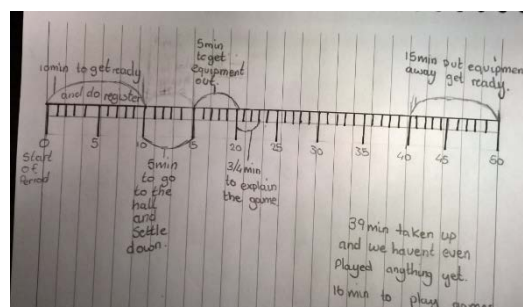 5min
to get
equipment
out.
10min to get ready
and do register
15min put equipmen
away get ready.
0
5
10
15
20
25
30
35
40
45
50
Start
of
Period
5min
to go
to the
hall
and
Settle
down.
3/4 min
to explain
the game
39min taken up
and we havent even
Played anything yet.
16 min to play games